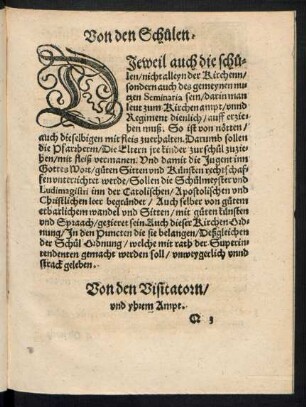 Von den Schůlen.
DJeweil auch die schů-
len/ nicht alleyn der Kirchenn/
sondern auch des gemeynen nu-
tzen Seminaria sein/ darin man
leut zum Kirchen ampt/ vnnd
Regiment dienlich/ auff erzie-
hen muß. So ist von nöten/
auch dieselbigen mit fleis zuerhalten. Darumb sollen
die Pfarrherrn/ Die Eltern jre kinder zur schůl zuzie-
hen/ mit fleiß vermanen. Vnd damit die Jugent inn
Gottes Wort/ gůten Sitten vnd Künsten rechtschaf-
fen vnterrichtet werde/ Sollen die Schůlmeyster vnd
Ludimagistri inn der Catolischen/ Apostolischen vnd
Christlichen leer begründet/ Auch selber von gůtem
erbarlichem wandel vnd Sitten/ mit gůten künsten
vnd Spraach/ gezieret sein Auch dieser Kirchen Ord-
nung/ Jn den Puncten die sie belangen/ Deßgleichen
der Schůl Ordnung/ welche mit rath der Superin-
tendenten gemacht werden soll/ vnweygerlich vnnd
strack geleben.
Von den Visitatorn/
vnd yhrem Ampt.
Q 3